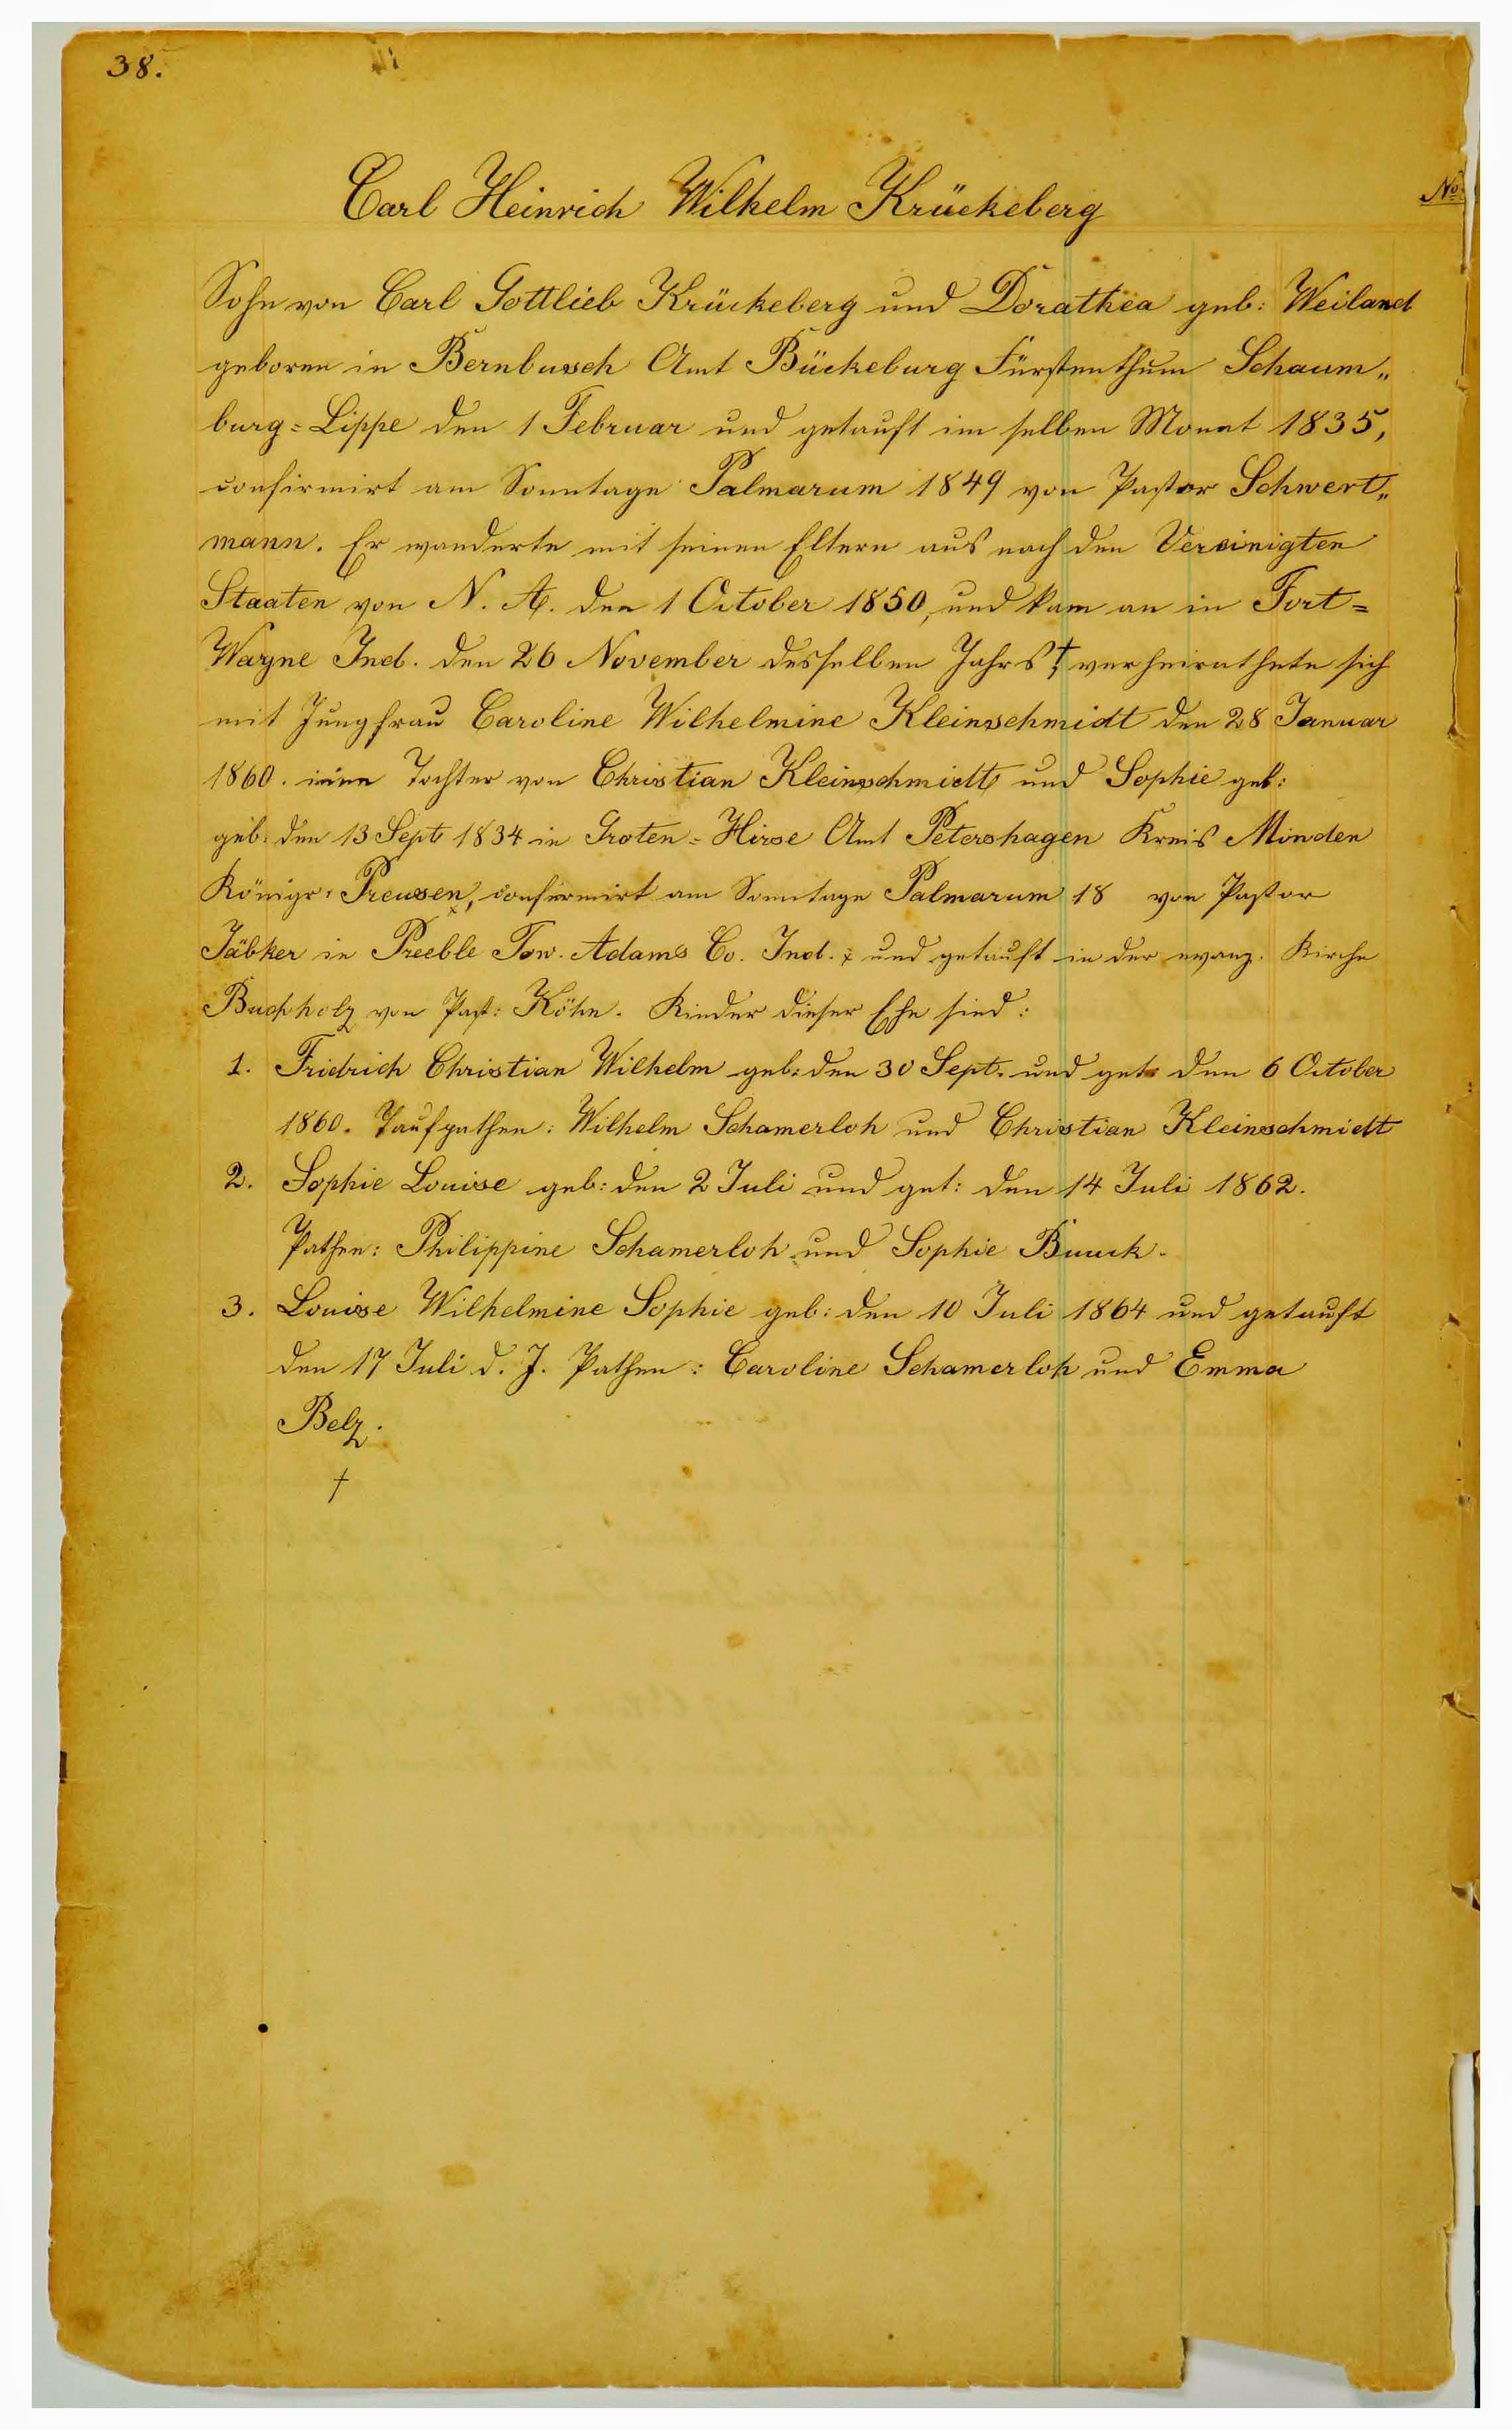 38.
No
Carl Heinrich Wilhelm Krückeberg
Sohn von Carl Gottlieb Krückeberg und Dorathea geb: Weiland
geboren in Bernbusch Amt Bückeburg Fürstenthum Schaum„
burg=Lippe den 1 Februar und getauft im selben Monat 1835,
confirmirt am Sonntage Palmarum 1849 von Pastor Schwert„
mann. Er wanderte mit seinen Eltern aus nach den Vereinigten
Staaten von N. A. den 1 October 1850, und kam an in Fort=
Wayne Ind. den 26 November desselben Jahrs†, verheirathete sich
mit Jungfrau Caroline Wilhelmine Kleinschmidt den 28 Januar
1860. eine Tochter von Christian Kleinschmidt und Sophie geb:
geb. den 13 Sept 1834 in Groten=Hirse Amt Petershagen Kreis Minden
Königr: Preusen, x confirmirt am Sonntage Palmarum 18 von Pastor
Jäbker in Preeble Tow. Adams Co. Ind. x und getauft in der evang. Kirche
Buchholz von Past: Köhn. Kinder dieser Ehe sind:
1. Fridrich Christian Wilhelm geb: den 30 Sept. und get: den 6 October
1860. Taufpathen: Wilhelm Schamerloh und Christian Kleinschmidt
2. Sophie Louise geb: den 2 Juli und get: den 14 Juli 1862.
Pathen: Philippine Schamerloh und Sophie Buuck.
3. Louise Wilhelmine Sophie geb: den 10 Juli 1864 und getauft
den 17 Juli d. J. Pathen: Caroline Schamerloh und Emma
Belz.
†